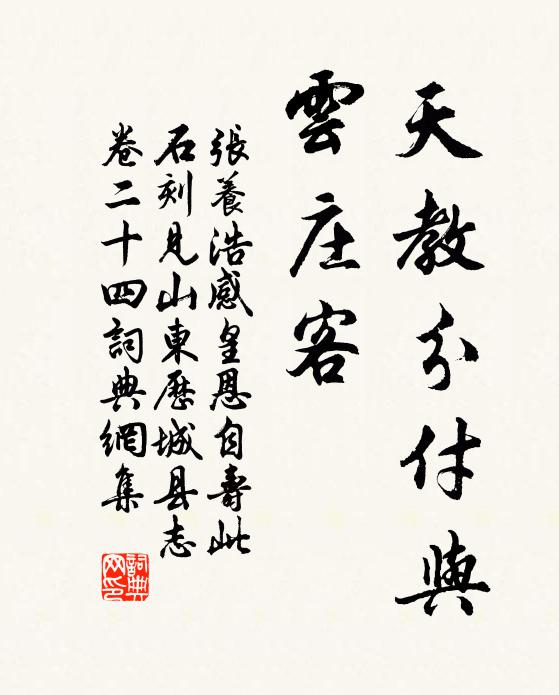 天教分付與
雲庄客
張養浩感皇恩自壽此
石刻見山東歷城县志
卷二十四詞典網集
詞典
网印